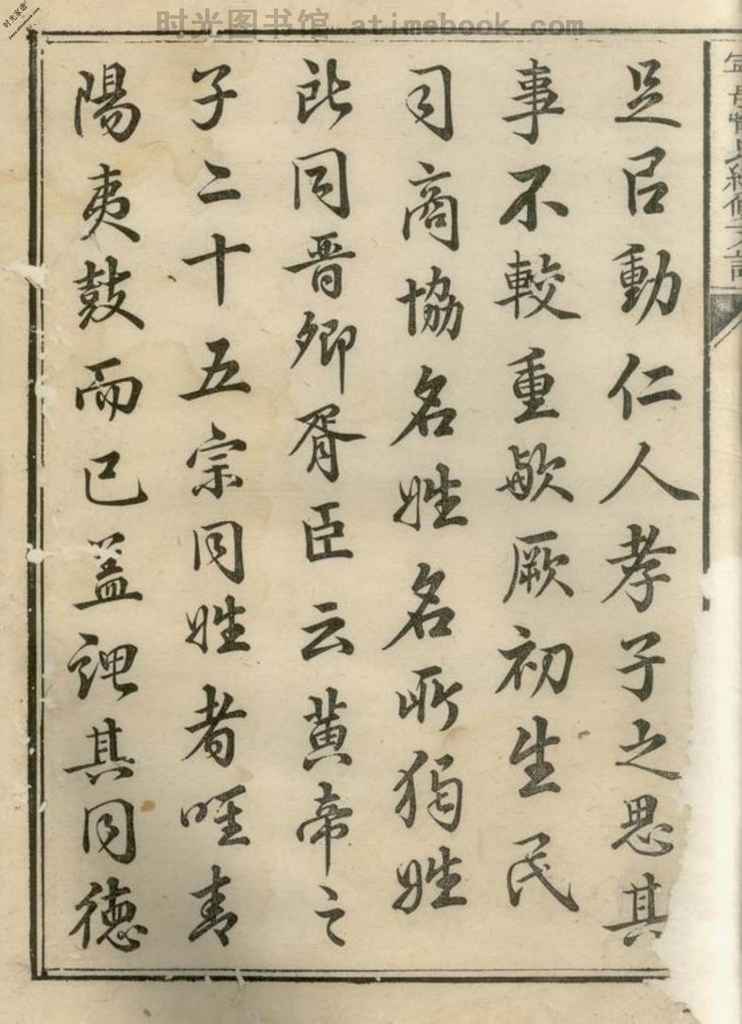 时光图书馆 atimebook.com
足㠯動仁人孝子之思其
事不較重歟厥初生民
司商協名姓名所獨姓
所同晋卿胥臣云黄帝之
子二十五宗同姓者唯青
陽夷鼓而已蓋謂其同德